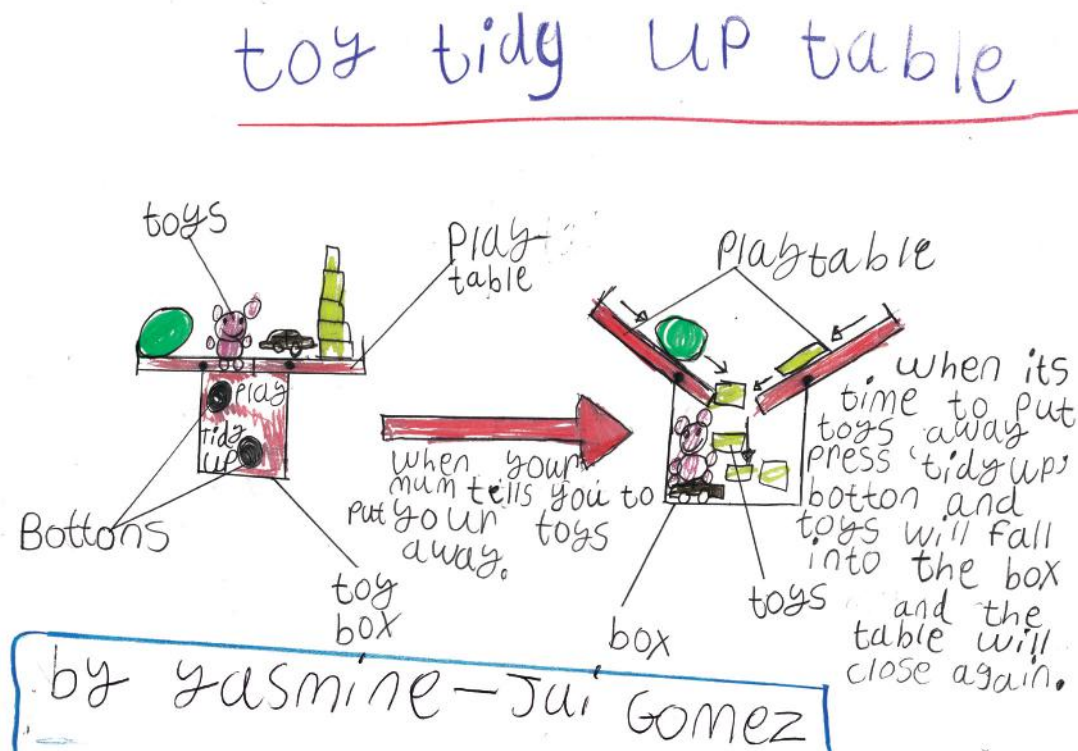 toy tidy UP table
toys
Play
table
Play
tidy
UP
Bottons
toy
box
when your
mum tells you to
put your toys
away.
Playtable
toys
box
when its
time to put
toys away
press 'tidy up'
botton and
toys will fall
into the box
and the
table will
close again.
by yasmine-Jui Gomez